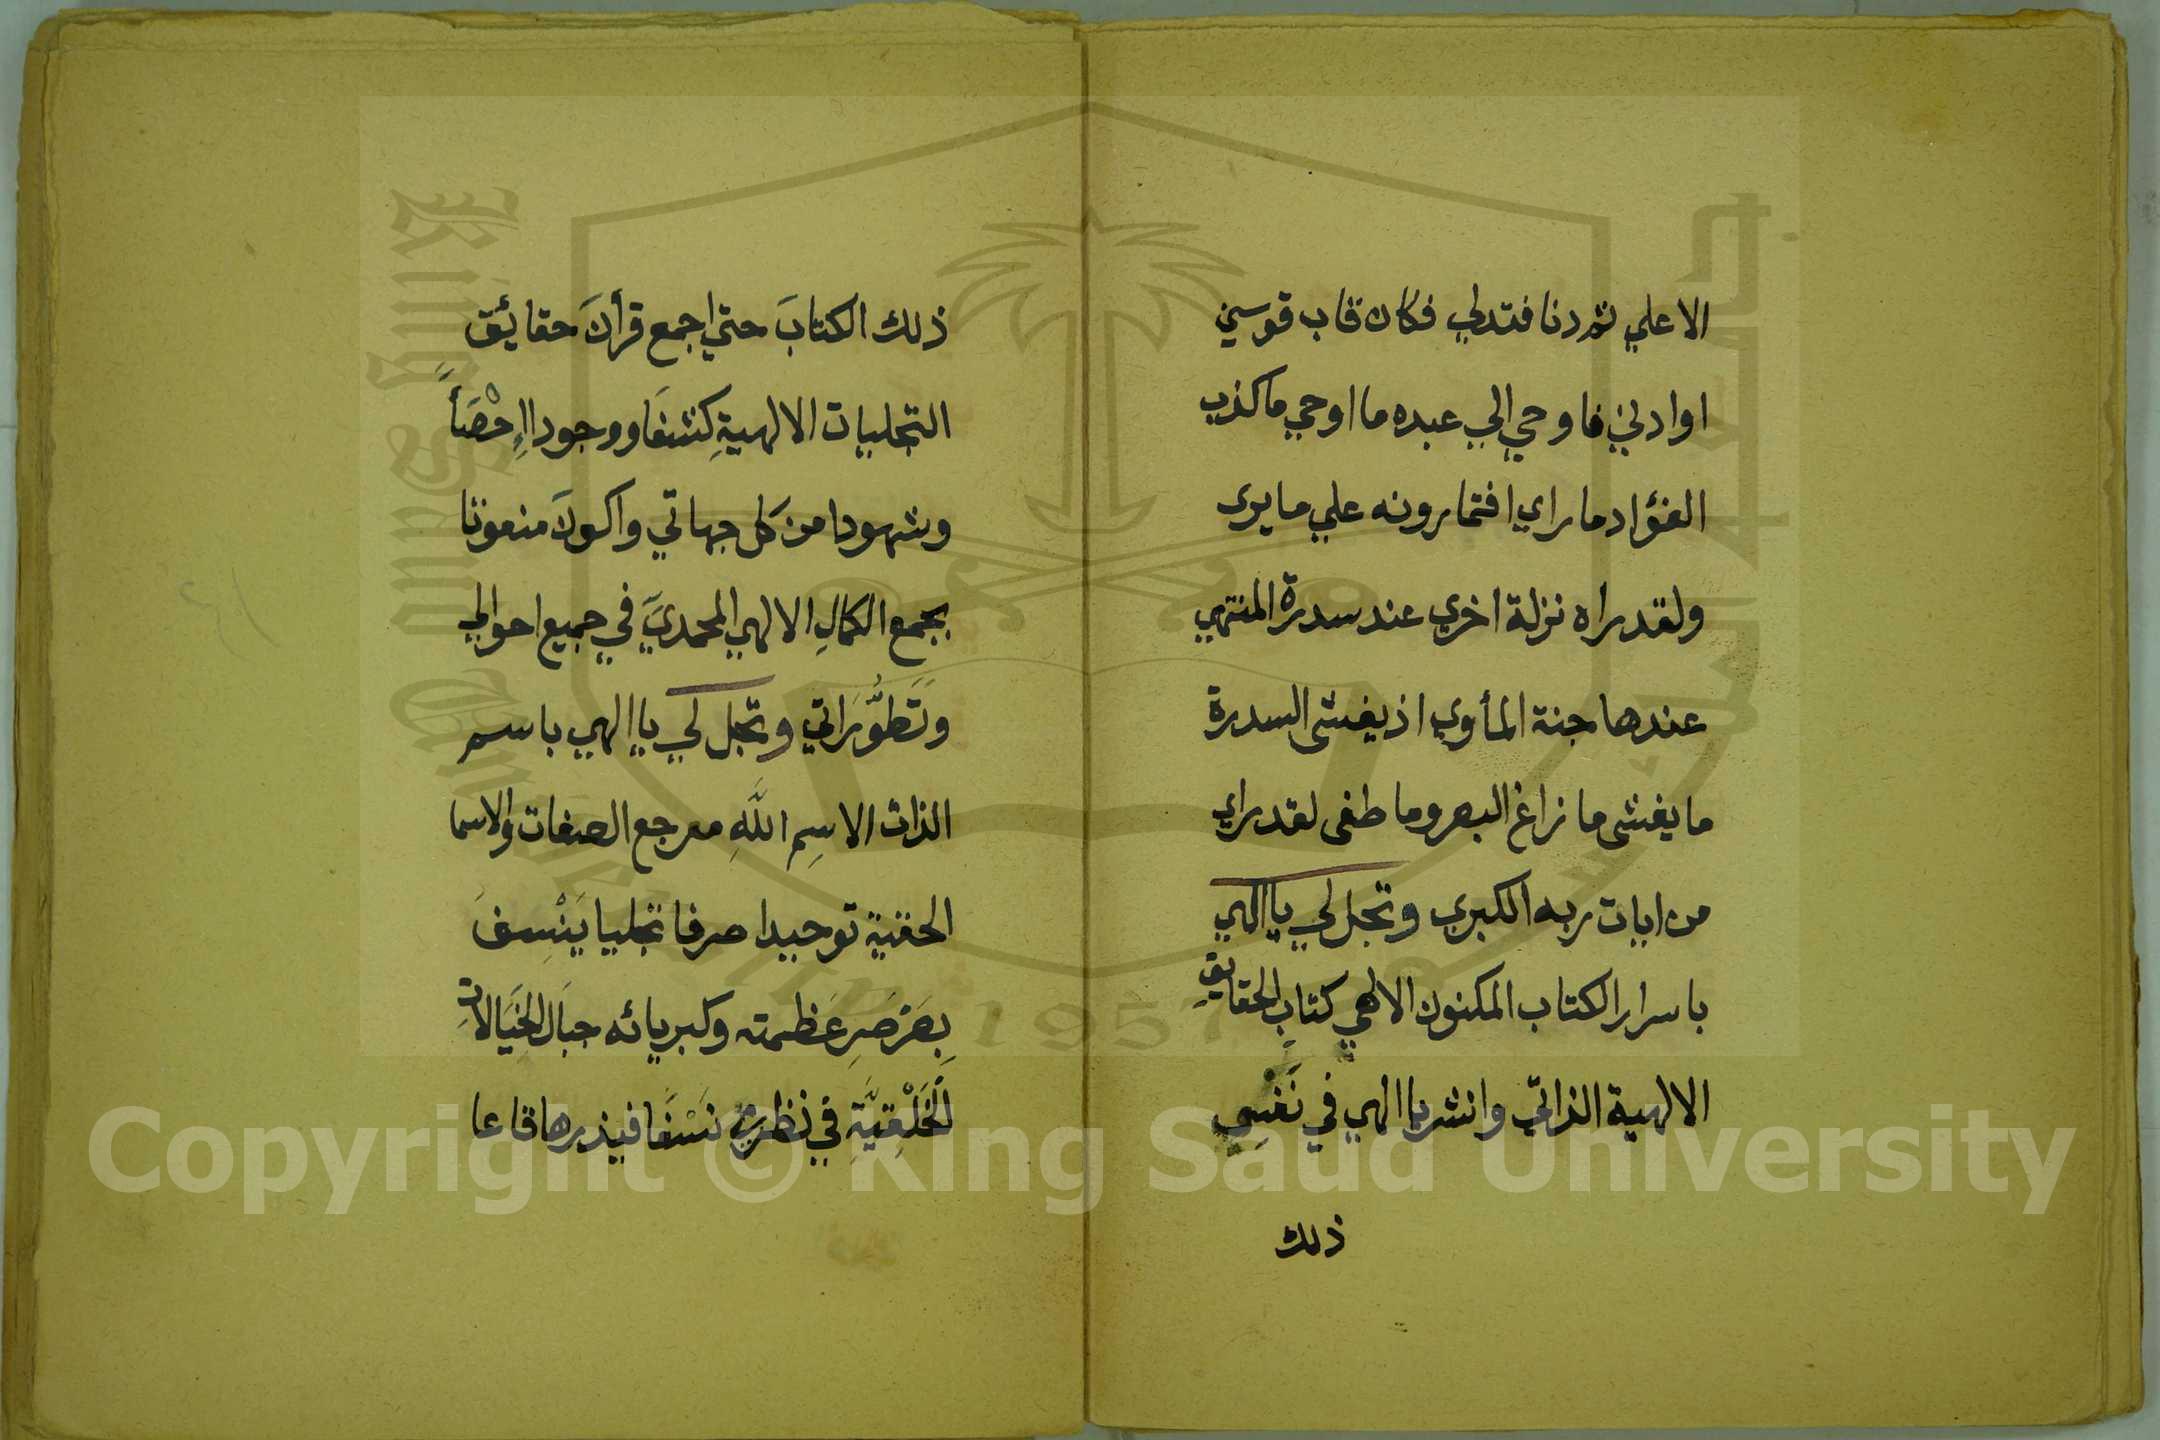 الاعلي ثم دنا فتدلي فكان قاب قوسين
او ادني فاوحي الي عبده ما اوحي ما كذب
الفؤاد ما راي افتمارونه علي ما يرى
ولقد راه نزلة اخري عند سدرة المنتهي
عندها جنة المأوي اذ يغشى السدرة
ما يغشى ما زاغ البصر وما طغى لقد راي
من ايات ربه الكبري وتجل لي يا الهي
باسرار الكتاب المكنون الالهي كتاب الحقايقِ
الالهية الذاتي وانشر يا الهي في نَفسِى
ذلك
ذلك الكتابَ حتي اجمع قرأنَ حقائق
التجليات الالهيةِ كشفًا ووجودا اِحْصَاً
وشهودا من كل جهاتي واكونَ منعوتا
بجمع الكمالِ الالهي المحمديَ في جميع احوالي
وتَطَوُّرَاتي وتجل لي يا الهي باسم
الذات الاسمِ اللَّهِ مرجع الصفات والاسما
الحقية توحيدا صرفا تجليا يَنْسِفَ
بِصَرْصَرِ عَظمته وكبريائه جبَال الخيَالاتِ
الخَلْقِيَّةِ في نظري نَسْفًا فيذرها قاعا
Copyright © King Saud University
King Saud University
1957